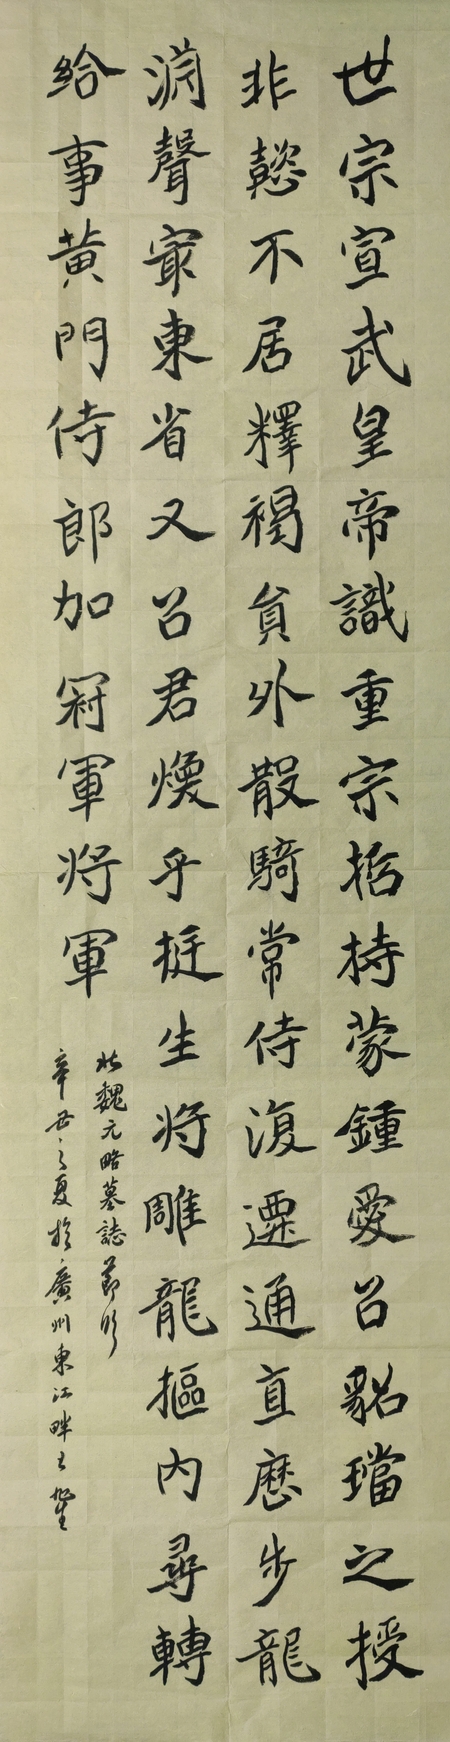 世宗宣武皇帝識重宗哲特蒙鍾愛召貂璫之授
非懿不居釋褐員外散騎常侍復遷通直歷步龍
淵聲寂東省又召君煥乎挺生將雕龍摳內尋轉
給事黃門侍郎加冠軍將軍
北魏元略墓誌節臨
辛丑之夏於廣州東江畔